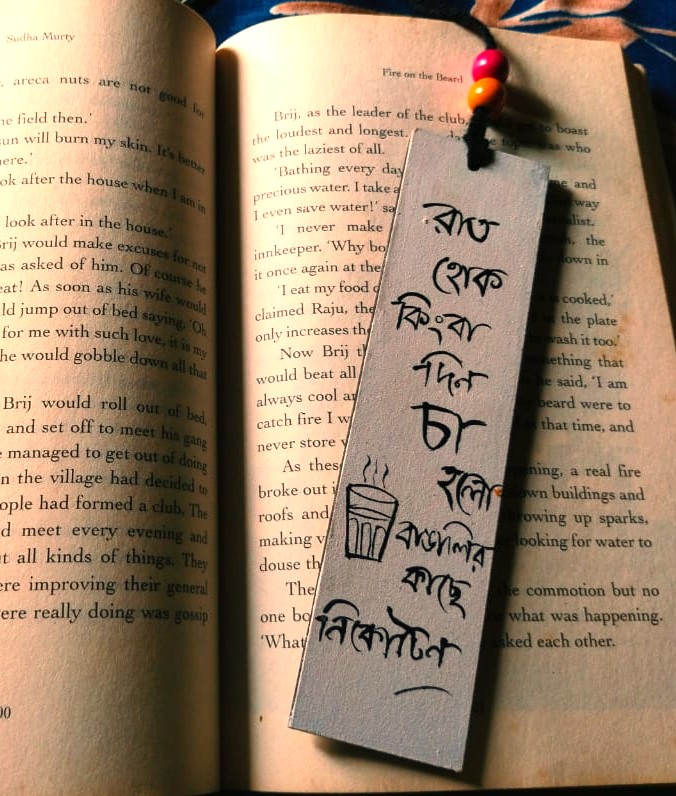 Sudha Murty
, areca nuts are not good for
ne field then.'
sun will burn my skin. It's better
here.'
ok after the house when I am in
look after in the house.'
Brij would make excuses for not
as asked of him. Of course he
eat! As soon as his wife would
ld jump out of bed saying, 'Oh
for me with such love, it is my
he would gobble down all that
Brij would roll out of bed,
and set off to meet his gang
managed to get out of doing
n the village had decided to
ople had formed a club. The
d meet every evening and
t all kinds of things. They
ere improving their general
were really doing was gossip
00
Fire on the Beard
Brij, as the leader of the club, to boast
the loudest and longest. day the top as who
was the laziest of all.
'Bathing every day me and
precious water. I take a way
I even save water!' sa alist.
'I never make h, the
innkeeper. 'Why bo down in
it once again at the
'I eat my food cooked,'
claimed Raju, the the plate
only increases the wash it too.'
Now Brij t mething that
would beat all he said, 'I am
always cool a beard were to
catch fire I w at that time, and
never store
As these ening, a real fire
broke out i own buildings and
roofs and rowing up sparks,
making looking for water to
douse th
The the commotion but no
one bo what was happening.
'What asked each other.
রাত
হোক
কিংবা
দিন
চা
হলো
বাঙালির
কাছে
নিকোটিন